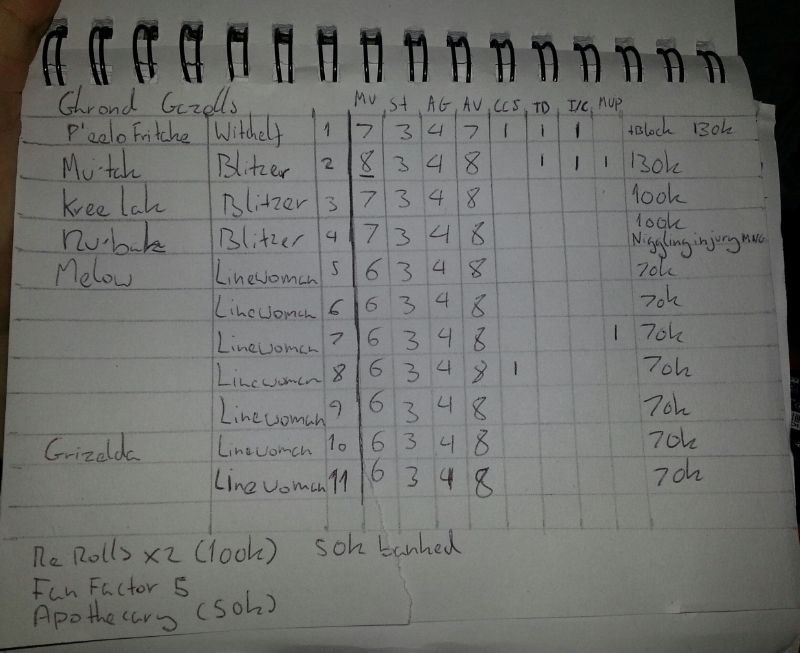 Ghrond Gazolls MV St AG AV CCS TD I/C MVP
P'eelo Fritche Witchelf 1 7 3 4 7 1 1 1 +Block 130k
Mu'tah Blitzer 2 8 3 4 8 1 1 1 130k
Kree lah Blitzer 3 7 3 4 8 100k
Nu'bahe Blitzer 4 7 3 4 8 100k Niggling injury MNG
Melow Linewoman 5 6 3 4 8 70k
Linewoman 6 6 3 4 8 70k
Linewoman 7 6 3 4 8 1 70k
Linewoman 8 6 3 4 8 1 70k
Linewoman 9 6 3 4 8 70k
Grizelda Linewoman 10 6 3 4 8 70k
Linewoman 11 6 3 4 8 70k
Re Rolls x2 (100k) 50k banked
Fan Factor 5
Apothecary (50k)